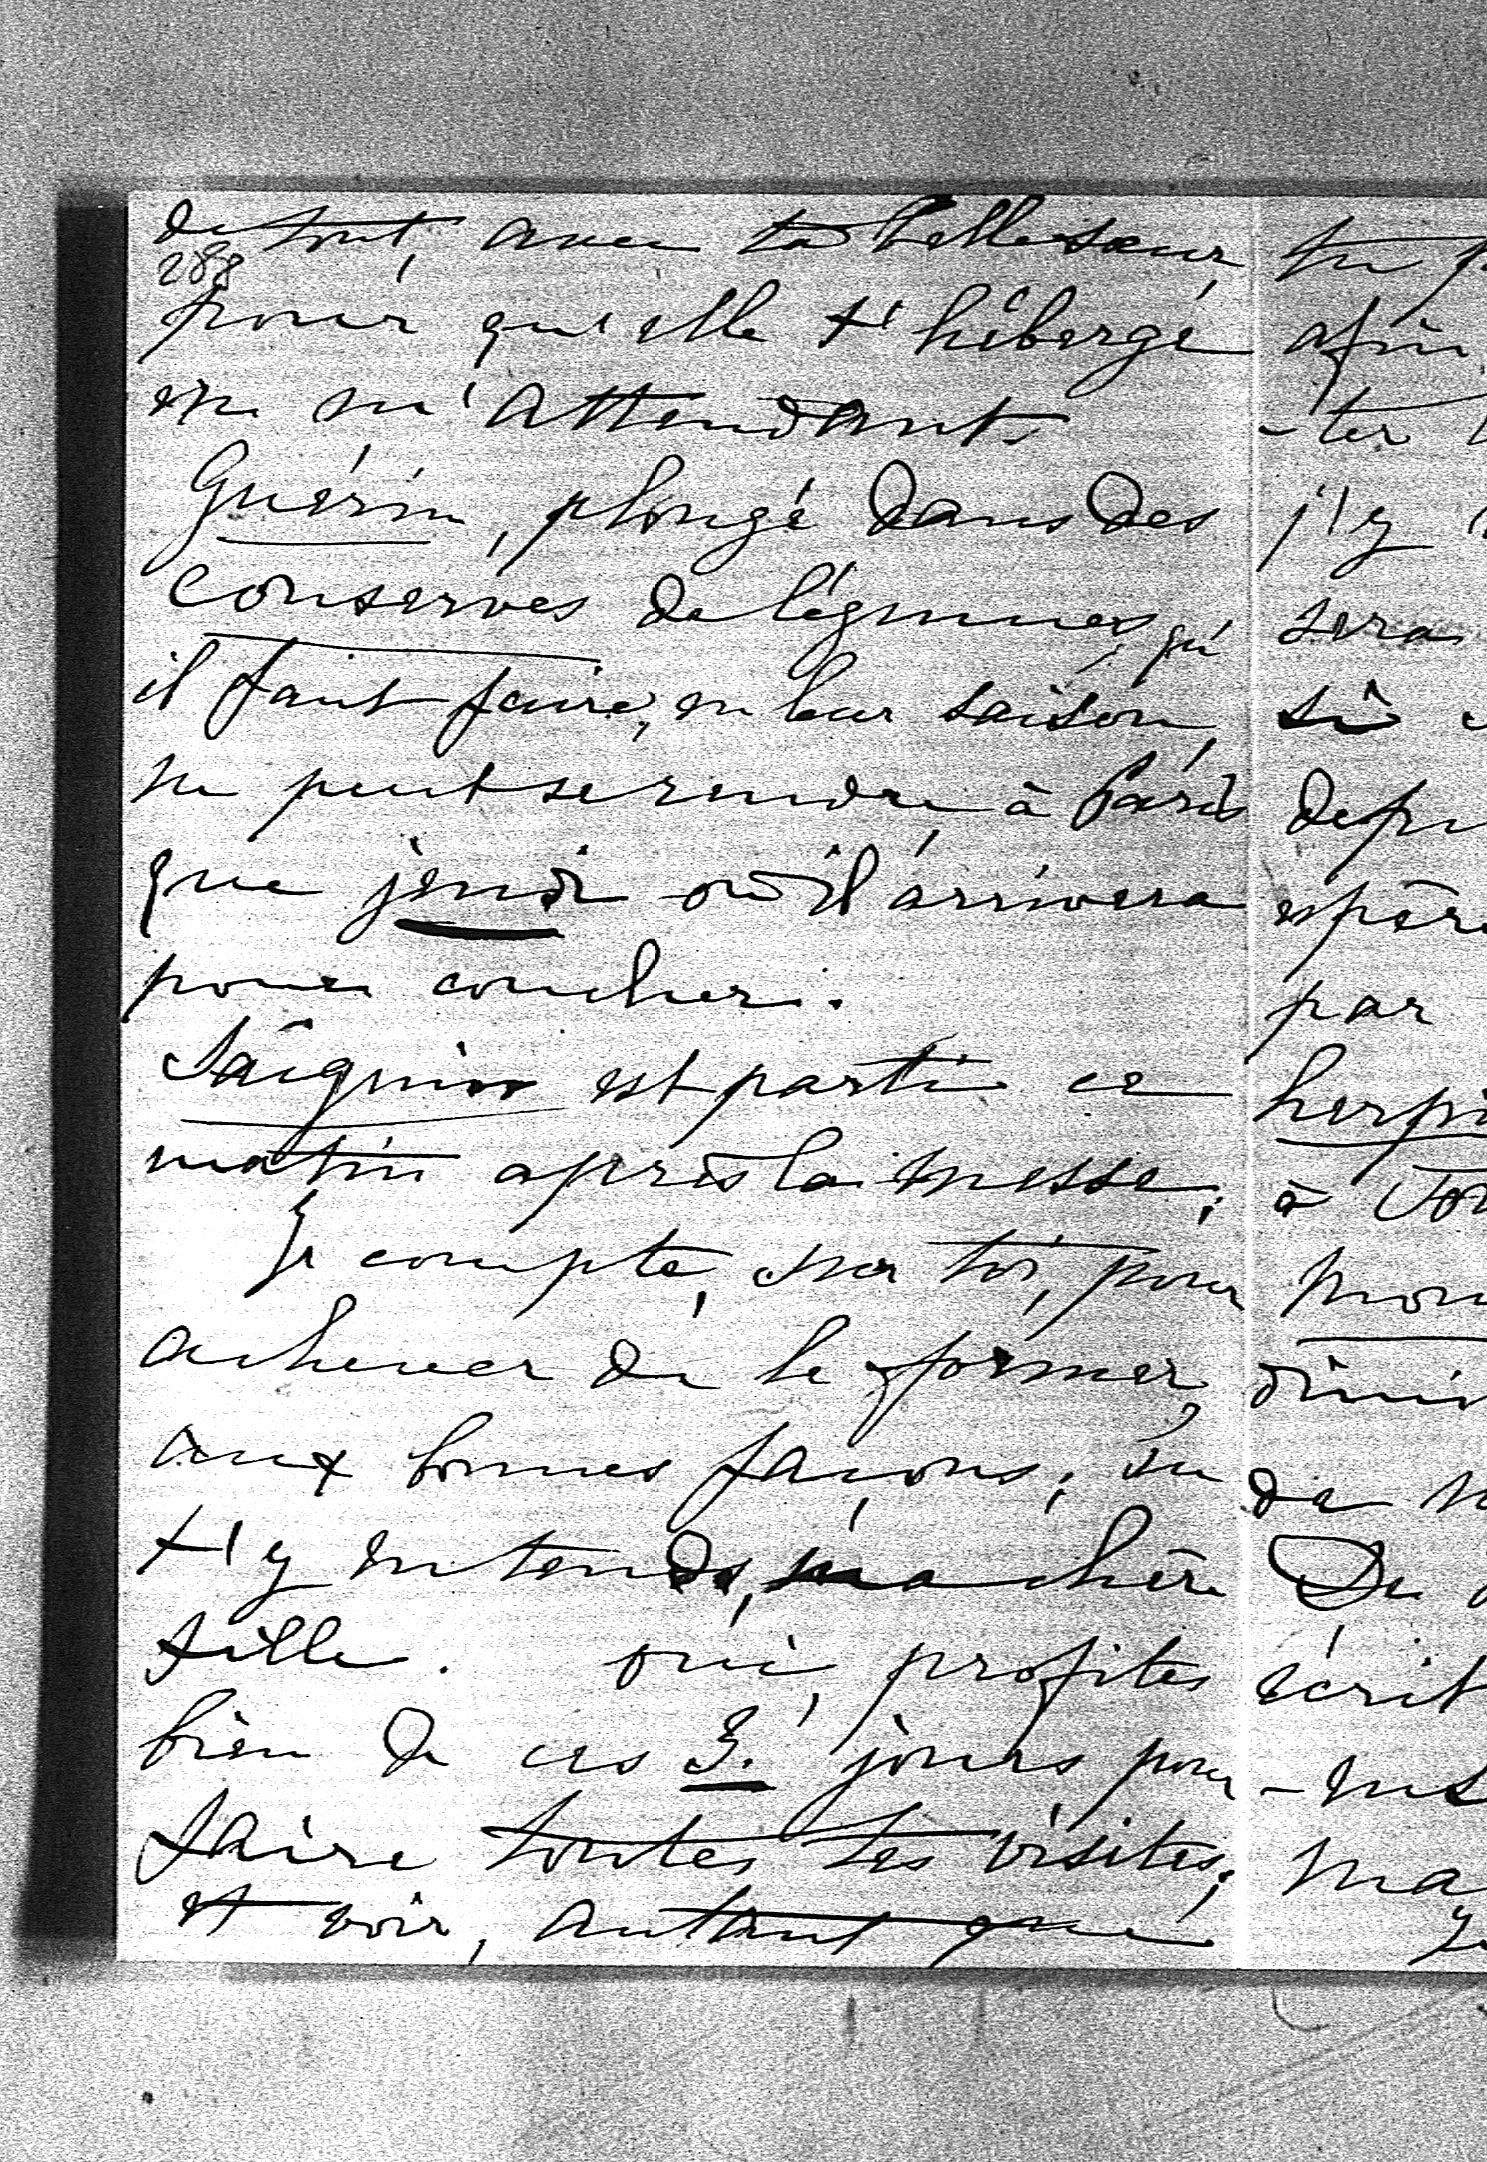 de tout, avec ta belle sœur,
288
pour qu'elle t'hébergé
en m'attendant.
Guérin, plongé dans des
conserves de légumes, qu'
il faut faire, en leur saison,
ne peut se rendre, à Paris
que jeudi où il arrivera
pour coucher.
est parti ce
matin après la messe;
Je compte, sur toi, pour
achever de le former,
aux bonnes façons; tu
t'y entends, ma chère
fille. oui, profites
bien de ces 3. jours pour
faire toutes tes visites;
et voir, autant que
tu p
afin
-ter
j'y
seras
si
depu
espère
par
herpi
à
mon
dimin
de
De
écrit
-ent
ma